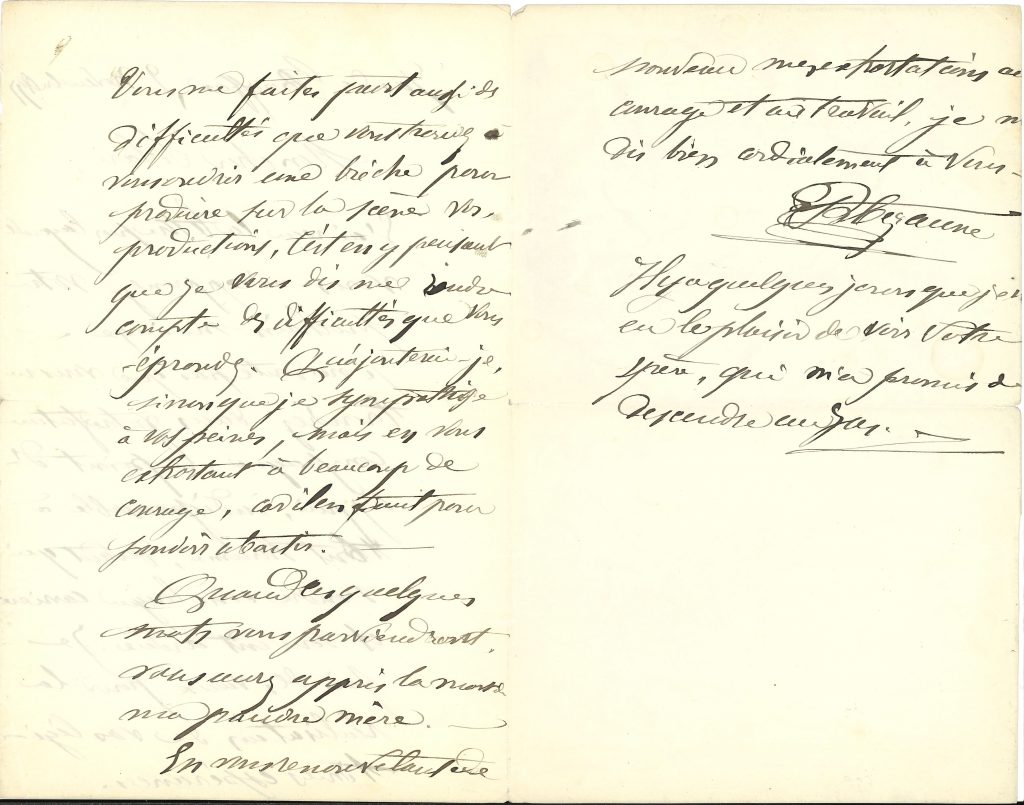 Vous me faites part aussi des
difficultés que vous trouvez à
vous ouvrir une brèche pour
produire sur la scène vos
productions, c'est en y pensant
que je vous dis me rendre
compte des difficultés que vous
éprouvez. Qu'ajouterai-je,
sinon que je sympathise
à vos peines, mais en vous
exhortant à beaucoup de
courage, car il en faut pour
pouvoir aboutir.
Quand ces quelques
mots vous parviendront,
vous aurez appris la mort de
ma pauvre mère.
En vous renouvelant de
nouveau mes exhortations au
courage et au travail, je m
dis bien cordialement à Vous
Il y a quelques jours que j'ai
eu le plaisir de voir Votre
père, qui m'a promis de
descendre au